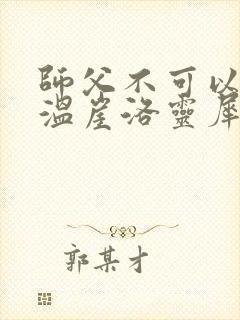 師父不可以
溫崖洛靈犀
郭某才